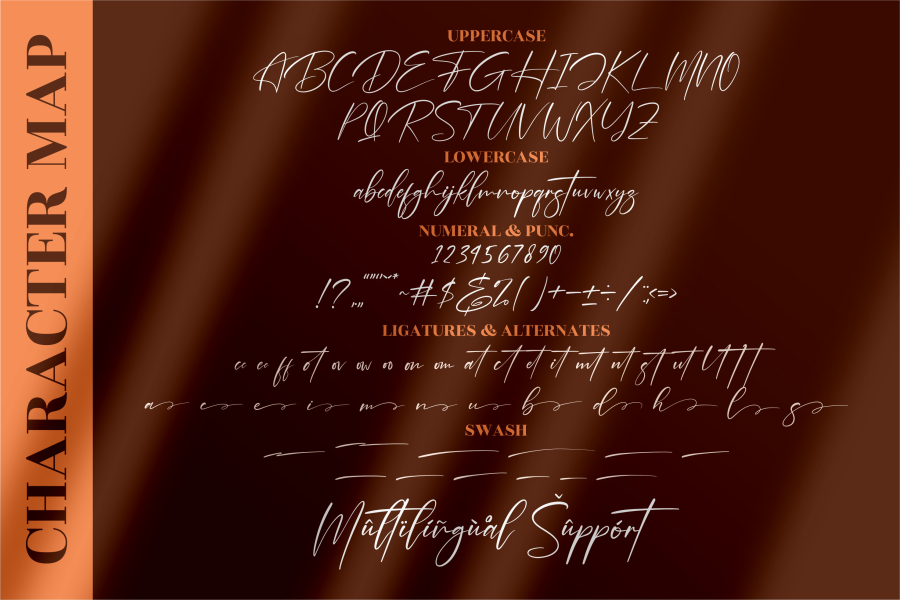 CHARACTER MAP
UPPERCASE
ABCDEFGHIJKLMNO
PQRSTUVWXYZ
LOWERCASE
abcdefghijklmnopqrstuvwxyz
NUMERAL & PUNC.
1234567890
!? ~#$&%( )+−±÷/:;<=>
LIGATURES & ALTERNATES
ee ff ot ov ow oo on om at et it mt nt st ut
a e e i m n u b d h l s
SWASH
Mûltïlíñgùål Šûppórt